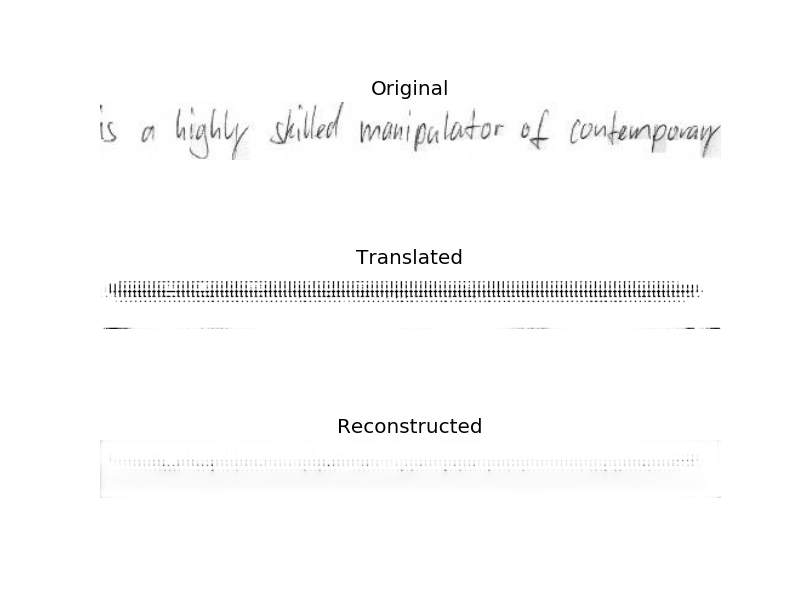 Original
is a highly skilled manipulator of contemporary
Translated
Reconstructed